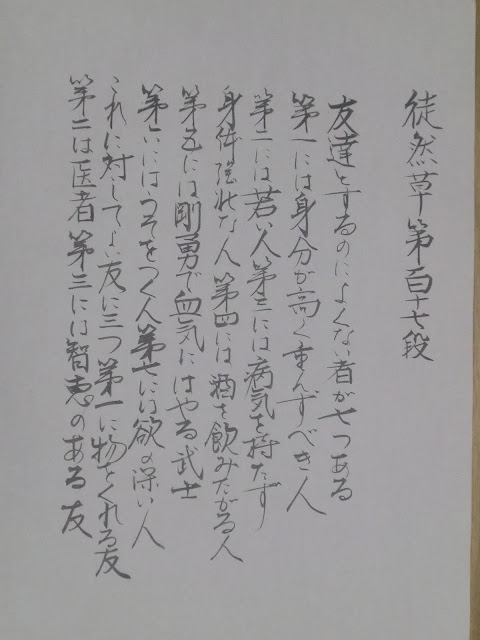 徒然草第百十七段
友達とするのによくない者が七つある
第一には身分が高く重んずべき人
第二には若い人第三には病気を持たず
身体強壮な人第四には酒を飲みたがる人
第五には剛勇で血気にはやる武士
第六にはうそをつく人第七には欲の深い人
これに対してよい友に三つ第一に物をくれる友
第二は医者第三には智恵のある友